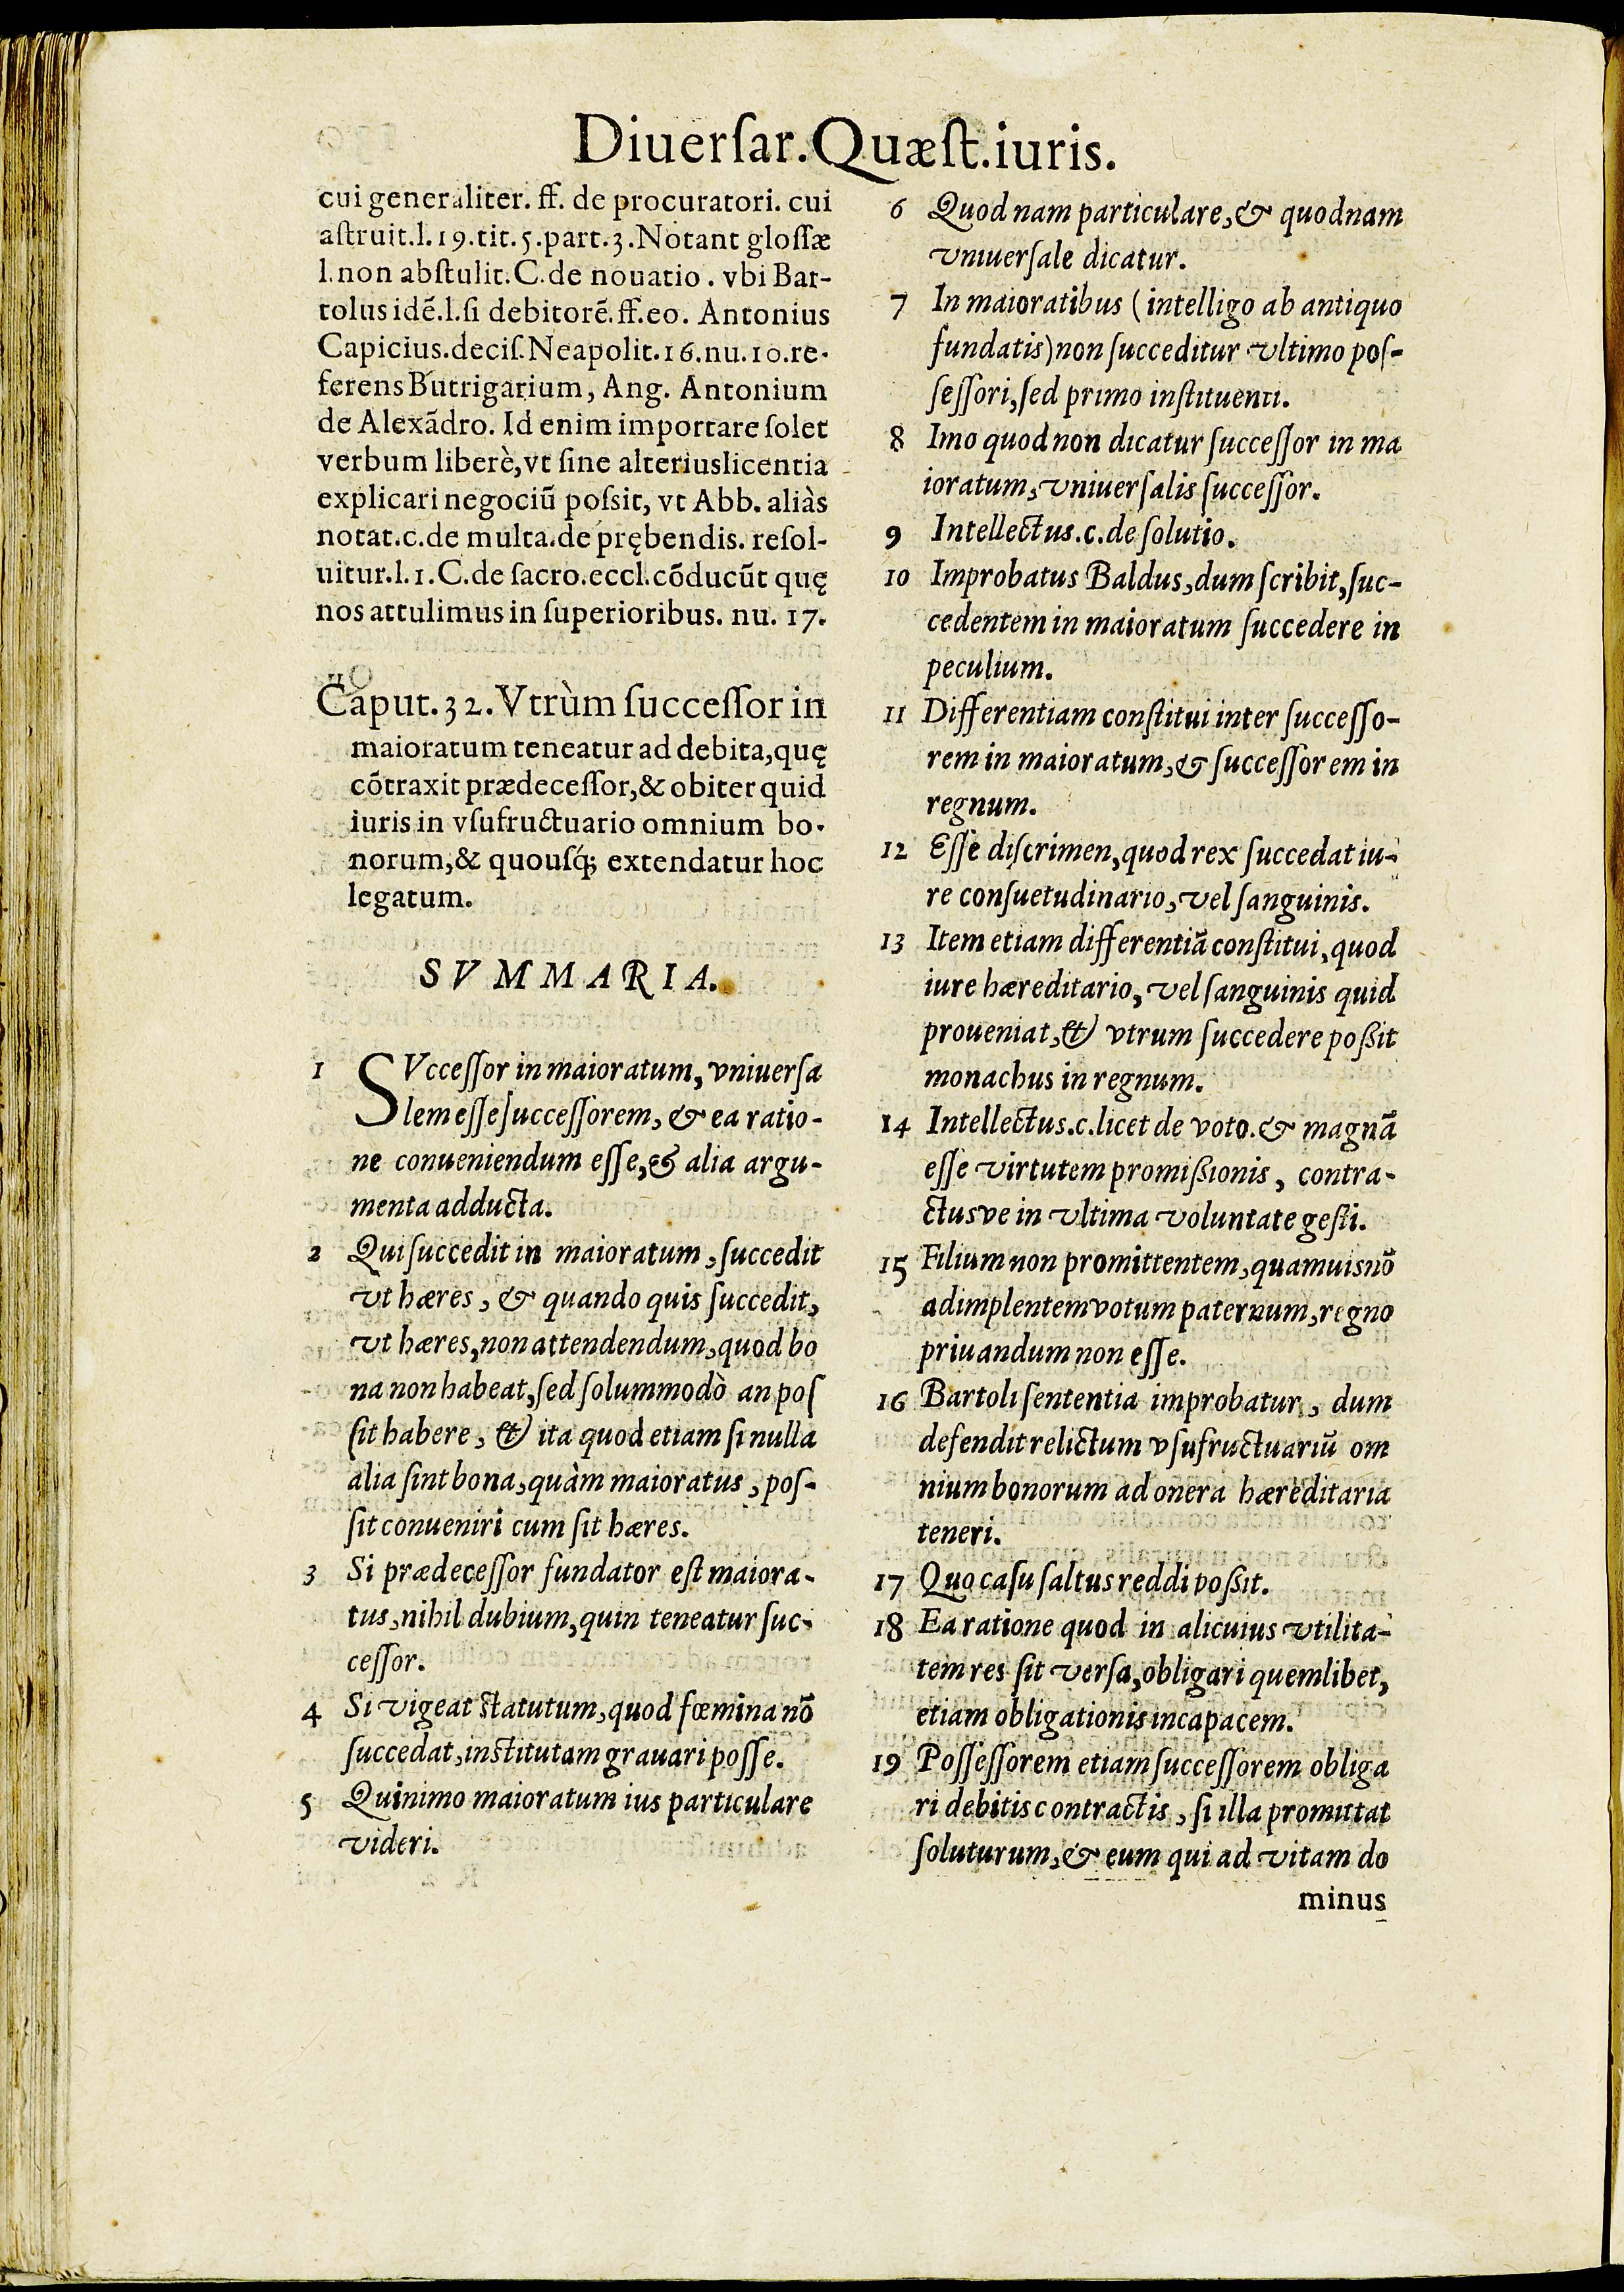 Diuerſar.Quæſt.iuris.
cui generaliter. ff. de procuratori. cui
aſtruit.l.19.tit.5.part.3.Notant gloſſæ
l.non abſtulit.C.de nouatio. vbi Bar-
tolus idẽ.l.ſi debitorẽ.ff.eo. Antonius
Capicius.deciſ.Neapolit.16.nu.10.re-
ferens Butrigarium, Ang. Antonium
de Alexãdro. Id enim importare ſolet
verbum liberè,vt ſine alteriuslicentia
explicari negociũ poſsit, vt Abb. aliàs
notat.c.de multa.de prębendis. reſol-
uitur.l.1.C.de ſacro.eccl.cõducũt quę
nos attulimus in ſuperioribus. nu. 17.
Caput.32.Vtrùm ſucceſſor in
maioratum teneatur ad debita,quę
cõtraxit prædeceſſor,& obiter quid
iuris in vſufructuario omnium bo-
norum,& quouſq́; extendatur hoc
legatum.
SVMMARIA.
1 SVcceſſor in maioratum, vniuerſa
lem eſſe ſucceſſorem, & ea ratio-
ne conueniendum eſſe,& alia argu-
menta adducta.
2 Qui ſuccedit in maioratum, ſuccedit
vt hæres, & quando quis ſuccedit,
vt hæres,non attendendum,quod bo
na non habeat,ſed ſolummodò an poſ
ſit habere, & ita quod etiam ſi nulla
alia ſint bona,quàm maioratus, poſ-
ſit conueniri cum ſit hæres.
3 Si prædeceſſor fundator eſt maiora-
tus,nihil dubium,quin teneatur ſuc-
ceſſor.
4 Si vigeat ſtatutum,quod fœmina nõ
ſuccedat,inſtitutam grauari poſſe.
5 Quinimo maioratum ius particulare
videri.
6 Quod nam particulare,& quodnam
vniuerſale dicatur.
7 In maioratibus (intelligo ab antiquo
fundatis)non ſucceditur vltimo poſ-
ſeſſori,ſed primo inſtituenti.
8 Imo quod non dicatur ſucceſſor in ma
ioratum,vniuerſalis ſucceſſor.
9 Intellectus.c.de ſolutio.
10 Improbatus Baldus,dum ſcribit,ſuc-
cedentem in maioratum ſuccedere in
peculium.
11 Differentiam conſtitui inter ſucceſſo-
rem in maioratum,& ſucceſſorem in
regnum.
12 Eſſe diſcrimen,quod rex ſuccedat iu-
re conſuetudinario,vel ſanguinis.
13 Item etiam differentiã conſtitui,quod
iure hæreditario, vel ſanguinis quid
proueniat,& vtrum ſuccedere poßit
monachus in regnum.
14 Intellectus.c.licet de voto.& magnã
eſſe virtutem promißionis, contra-
ctusve in vltima voluntate geſti.
15 Filium non promittentem,quamuis nõ
adimplentem votum paternum,regno
priuandum non eſſe.
16 Bartoli ſententia improbatur, dum
defendit relictum vſufructuariũ om
nium bonorum ad onera hæreditaria
teneri.
17 Quo caſu ſaltus reddi poßit.
18 Ea ratione quod in alicuius vtilita-
tem res ſit verſa,obligari quemlibet,
etiam obligationis incapacem.
19 Poſſeſſorem etiam ſucceſſorem obliga
ri debitis contractis, ſi illa promittat
ſoluturum,& eum qui ad vitam do
minus